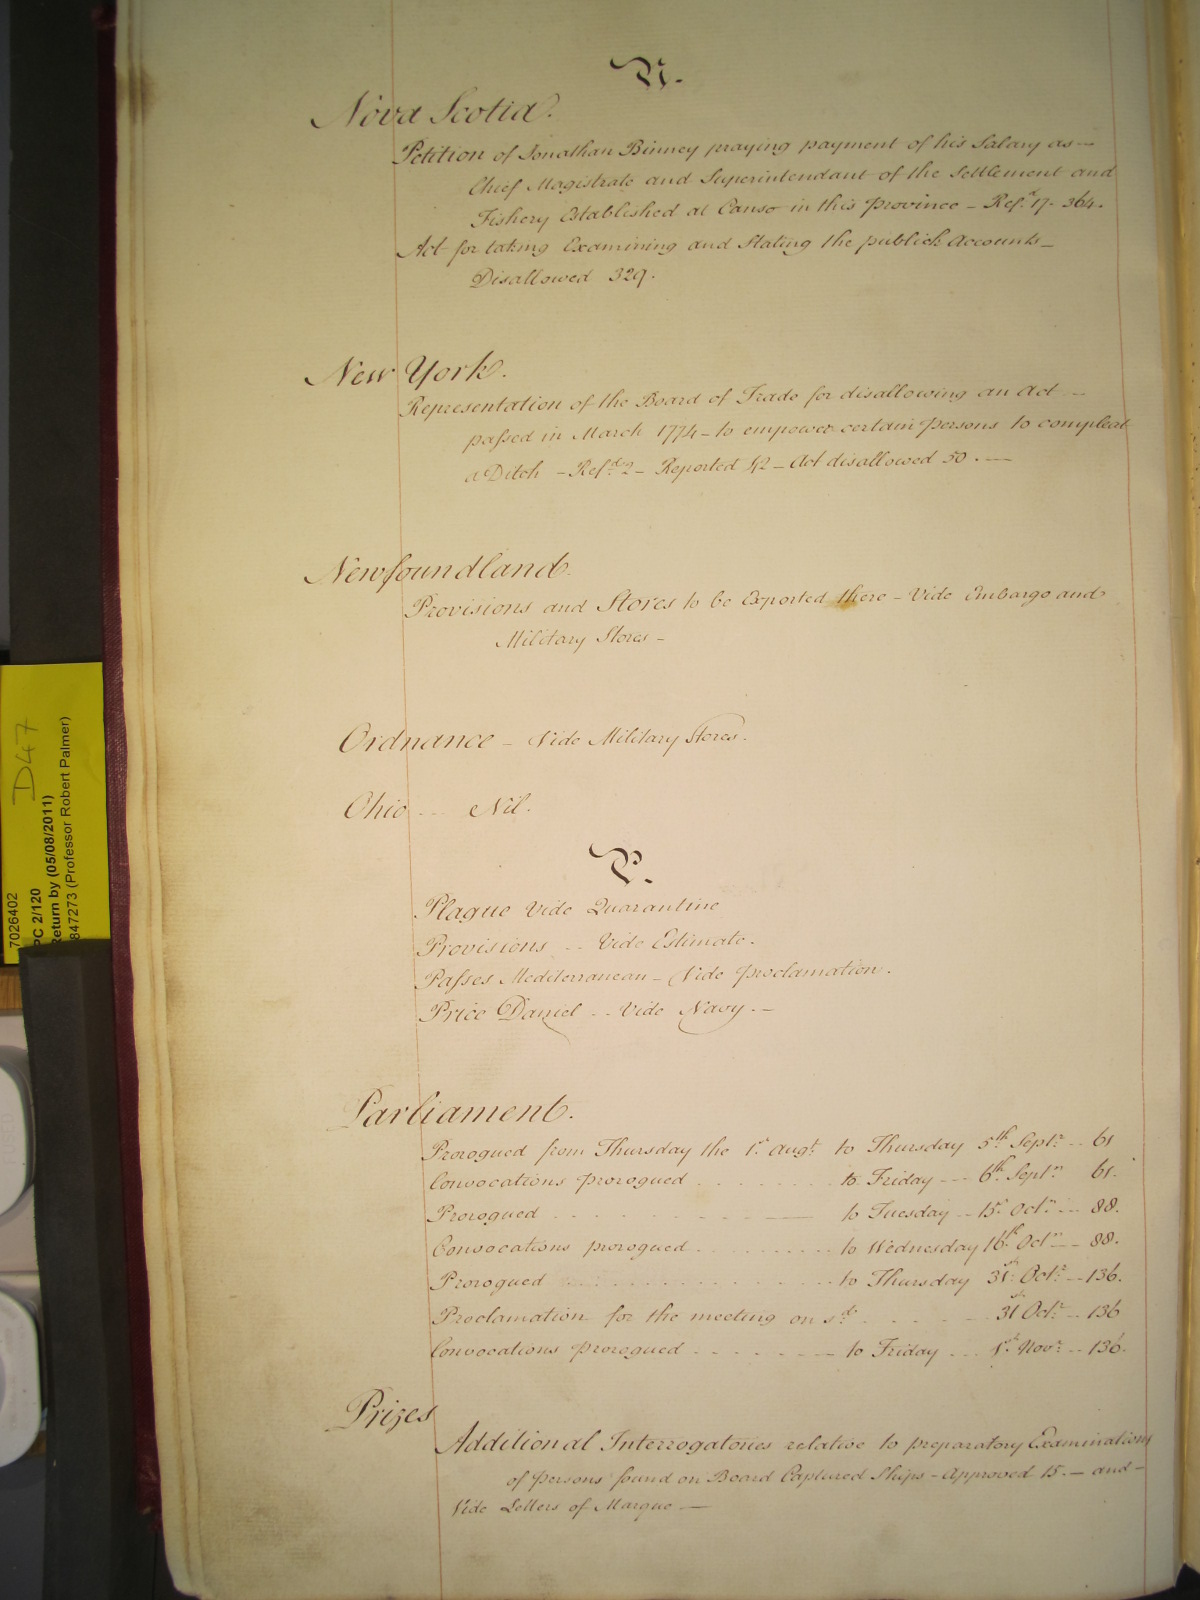 N.
Nova Scotia.
Petition of Jonathan Binney praying payment of his Salary as—
Chief Magistrate and Superintendant of the Settlement and
Fishery Established at Canso in this Province – Ref.d 17. 364.
Act for taking Examining and Stating the publick Accounts—
Disallowed 329.
New York.
Representation of the Board of Trade for disallowing an Act —
passed in March 1774 – to empower certain Persons to compleat
a Ditch – Ref.d 2 – Reported 42 – Act disallowed 50. —
Newfoundland.
Provisions and Stores to be Exported there – Vide Embargo and
Military Stores –
Ordnance – Vide Military Stores.
Ohio ... Nil.
P.
Plague Vide Quarantine
Provisions .. Vide Estimate.
Passes Mediterranean – Vide Proclamation.
Price Daniel .. Vide Navy. –
Parliament.
Prorogued from Thursday the 1st Augt. to Thursday 5th Septr. .. 61
Convocations prorogued ........ to Friday ... 6th Septr. 61.
Prorogued ........ to Tuesday .. 15 Octr. ... 88.
Convocations prorogued ........ to Wednesday 16th Octr. .. 88.
Prorogued ............ to Thursday 31st Octr. .. 136.
Proclamation for the meeting on sd. ...... 31st Octr. .. 136
Convocations prorogued ........ to Friday ... 1st Novr. .. 136.
Prizes
Additional Interrogatories relative to preparatory Examinations
of Persons found on Board Captured Ships – Approved 15. – and –
Vide Letters of Marque —
D47
7026402
PC 2/120
Return by (05/08/2011)
847273 (Professor Robert Palmer)